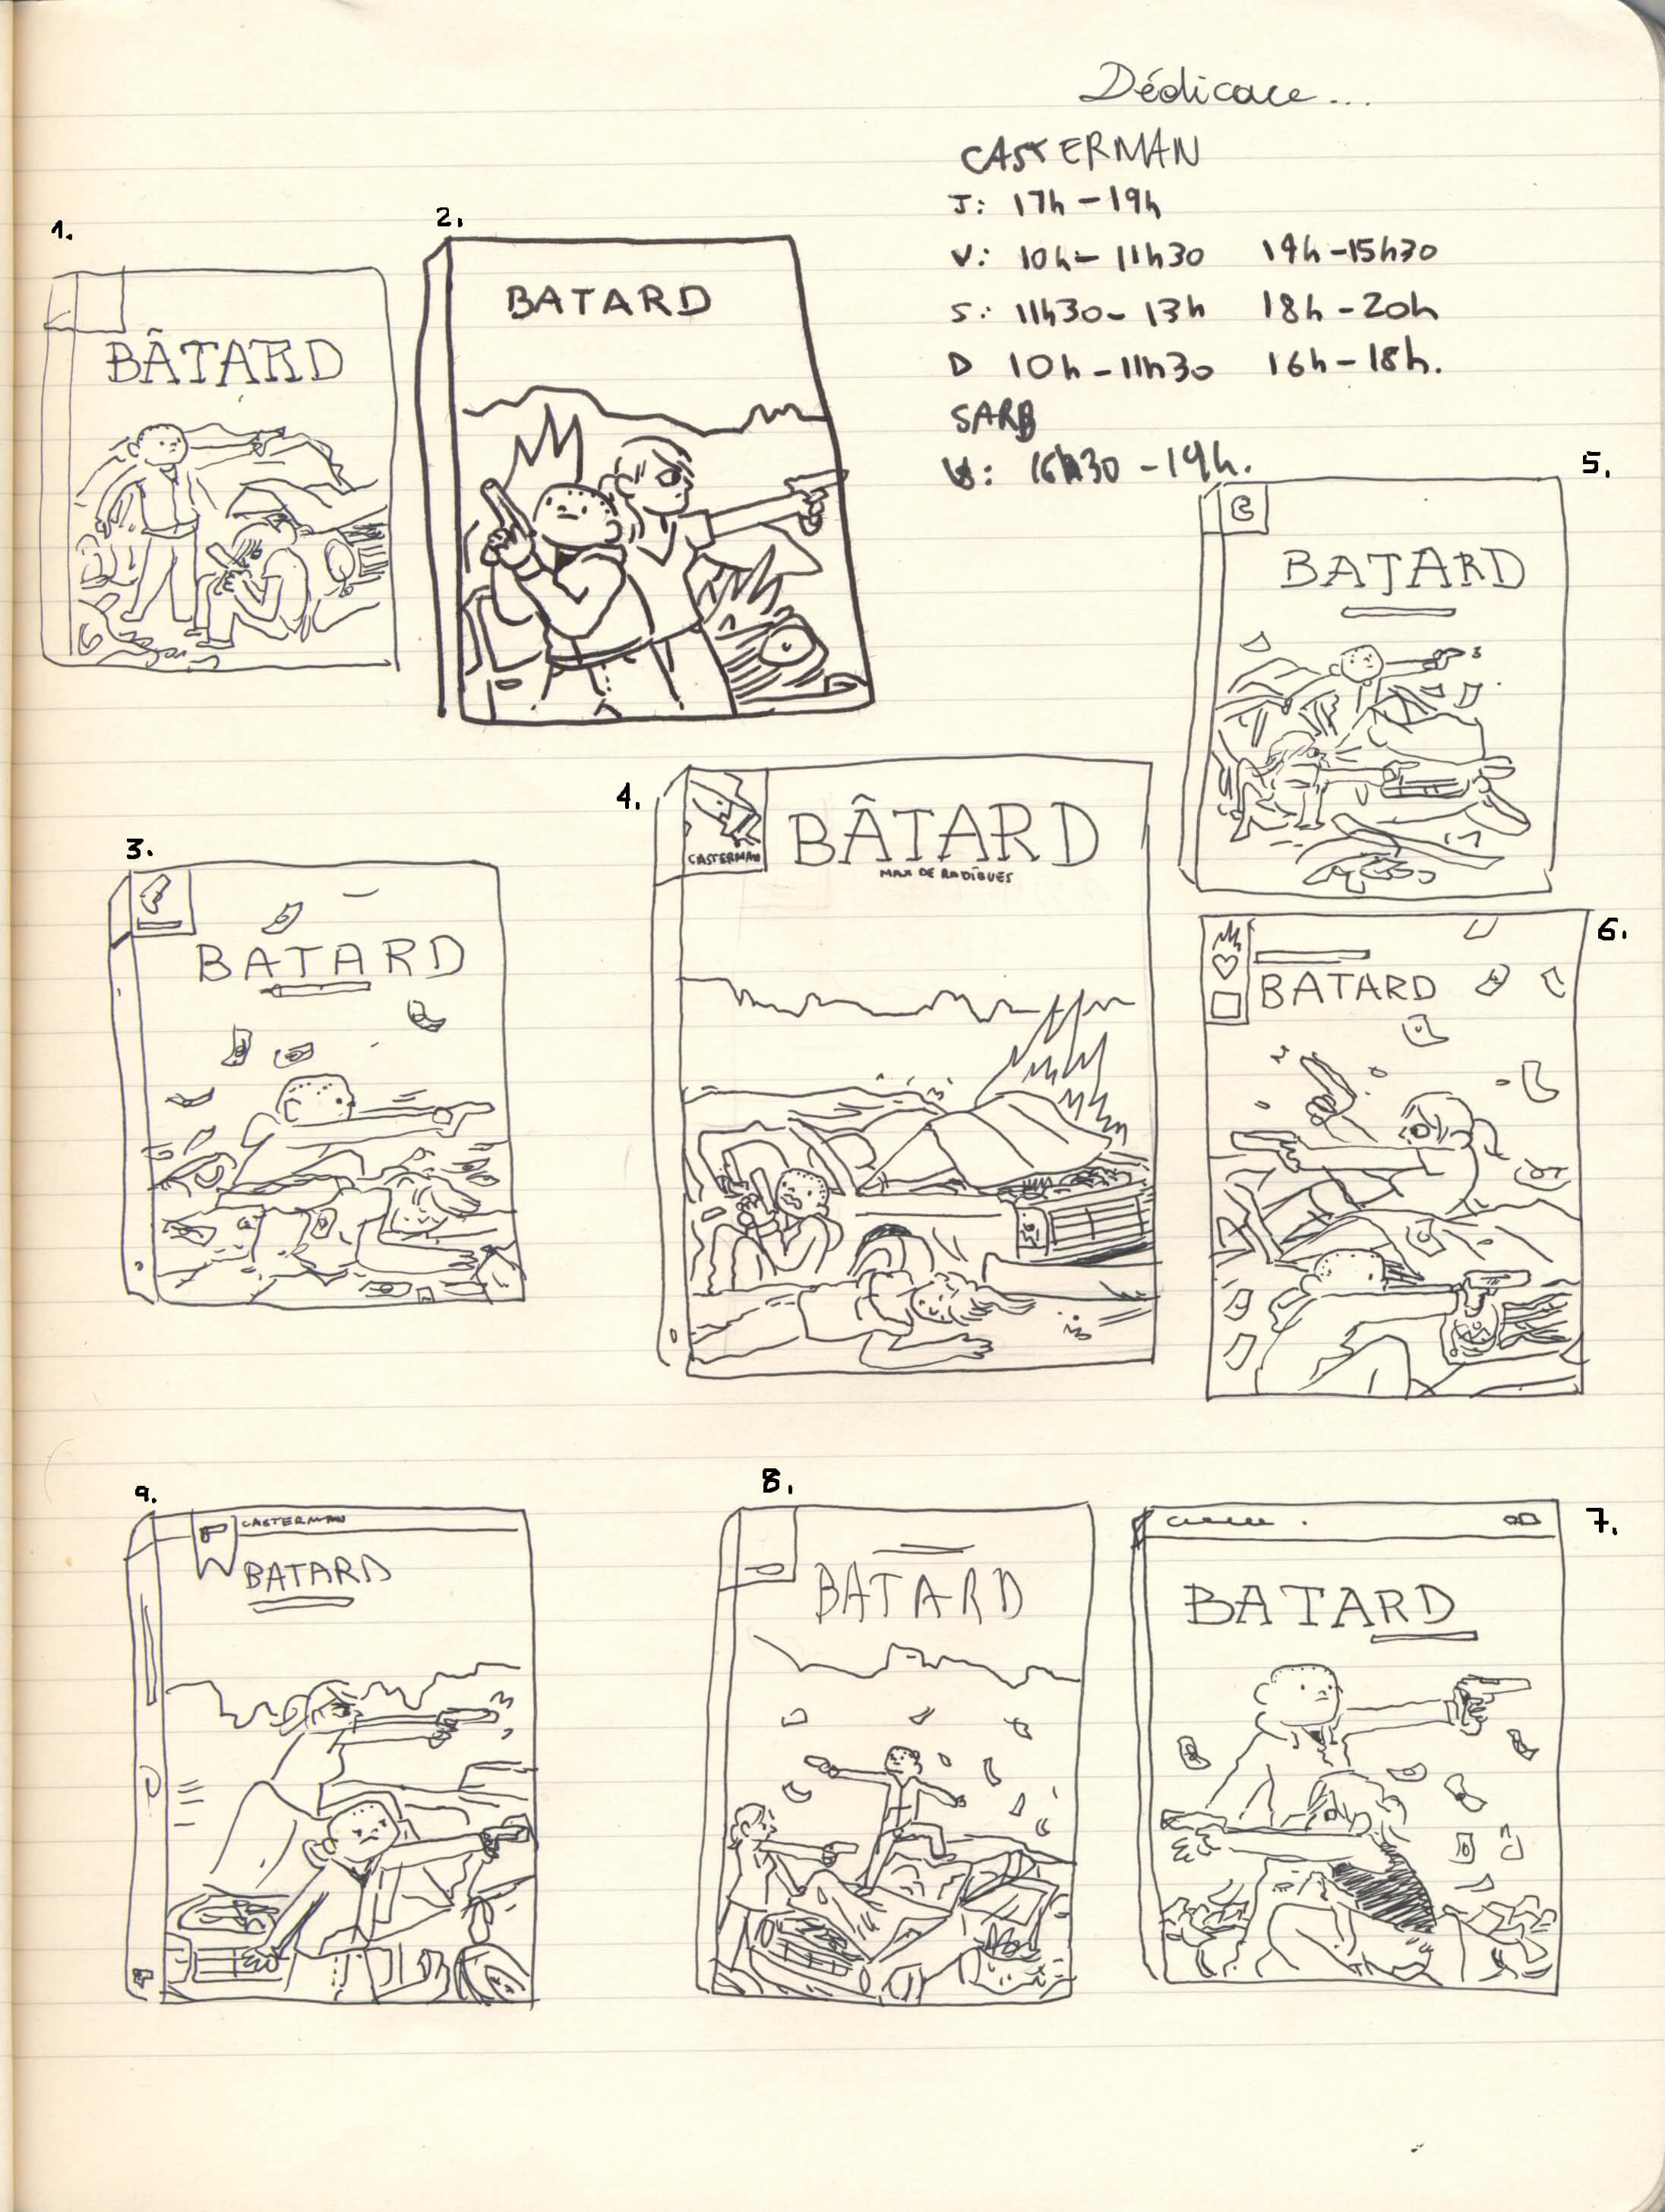 Dédicace...
CASTERMAN
J: 17h-19h
V: 10h-11h30 14h-15h30
S: 11h30-13h 18h-20h
D 10h-11h30 16h-18h.
SARB
16h30-19h.
1.
BÂTARD
2.
BATARD
3.
BATARD
4.
CASTERMAN
BÂTARD
MAX DE RADIGUÈS
5.
B
BATARD
6.
BATARD
9.
CASTERMAN
BATARD
8.
BATARD
7.
BATARD